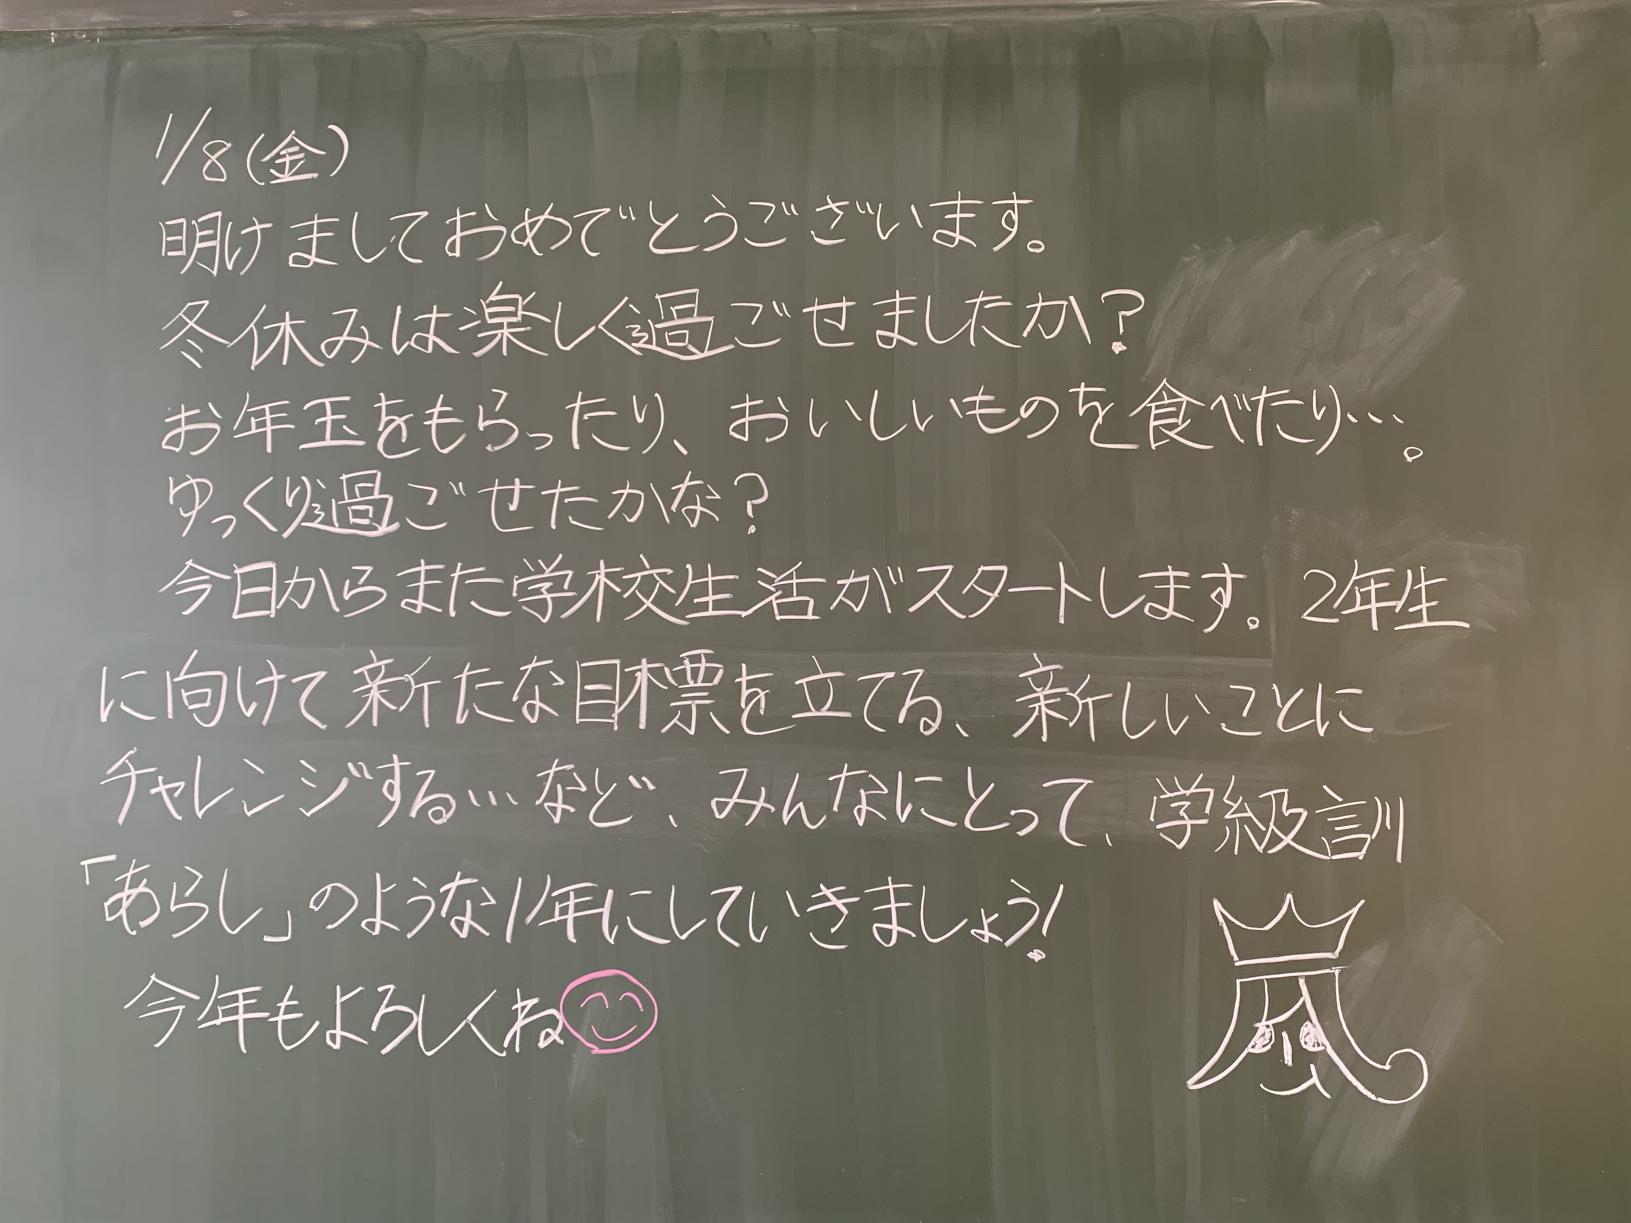 1/8(金)
明けましておめでとうございます。
冬休みは楽しく過ごせましたか?
お年玉をもらったり、おいしいものを食べたり…。
ゆっくり過ごせたかな?
今日からまた学校生活がスタートします。2年生
に向けて新たな目標を立てる、新しいことに
チャレンジする…など、みんなにとって、学級訓
「あらし」のような1年にしていきましょう!
今年もよろしくね